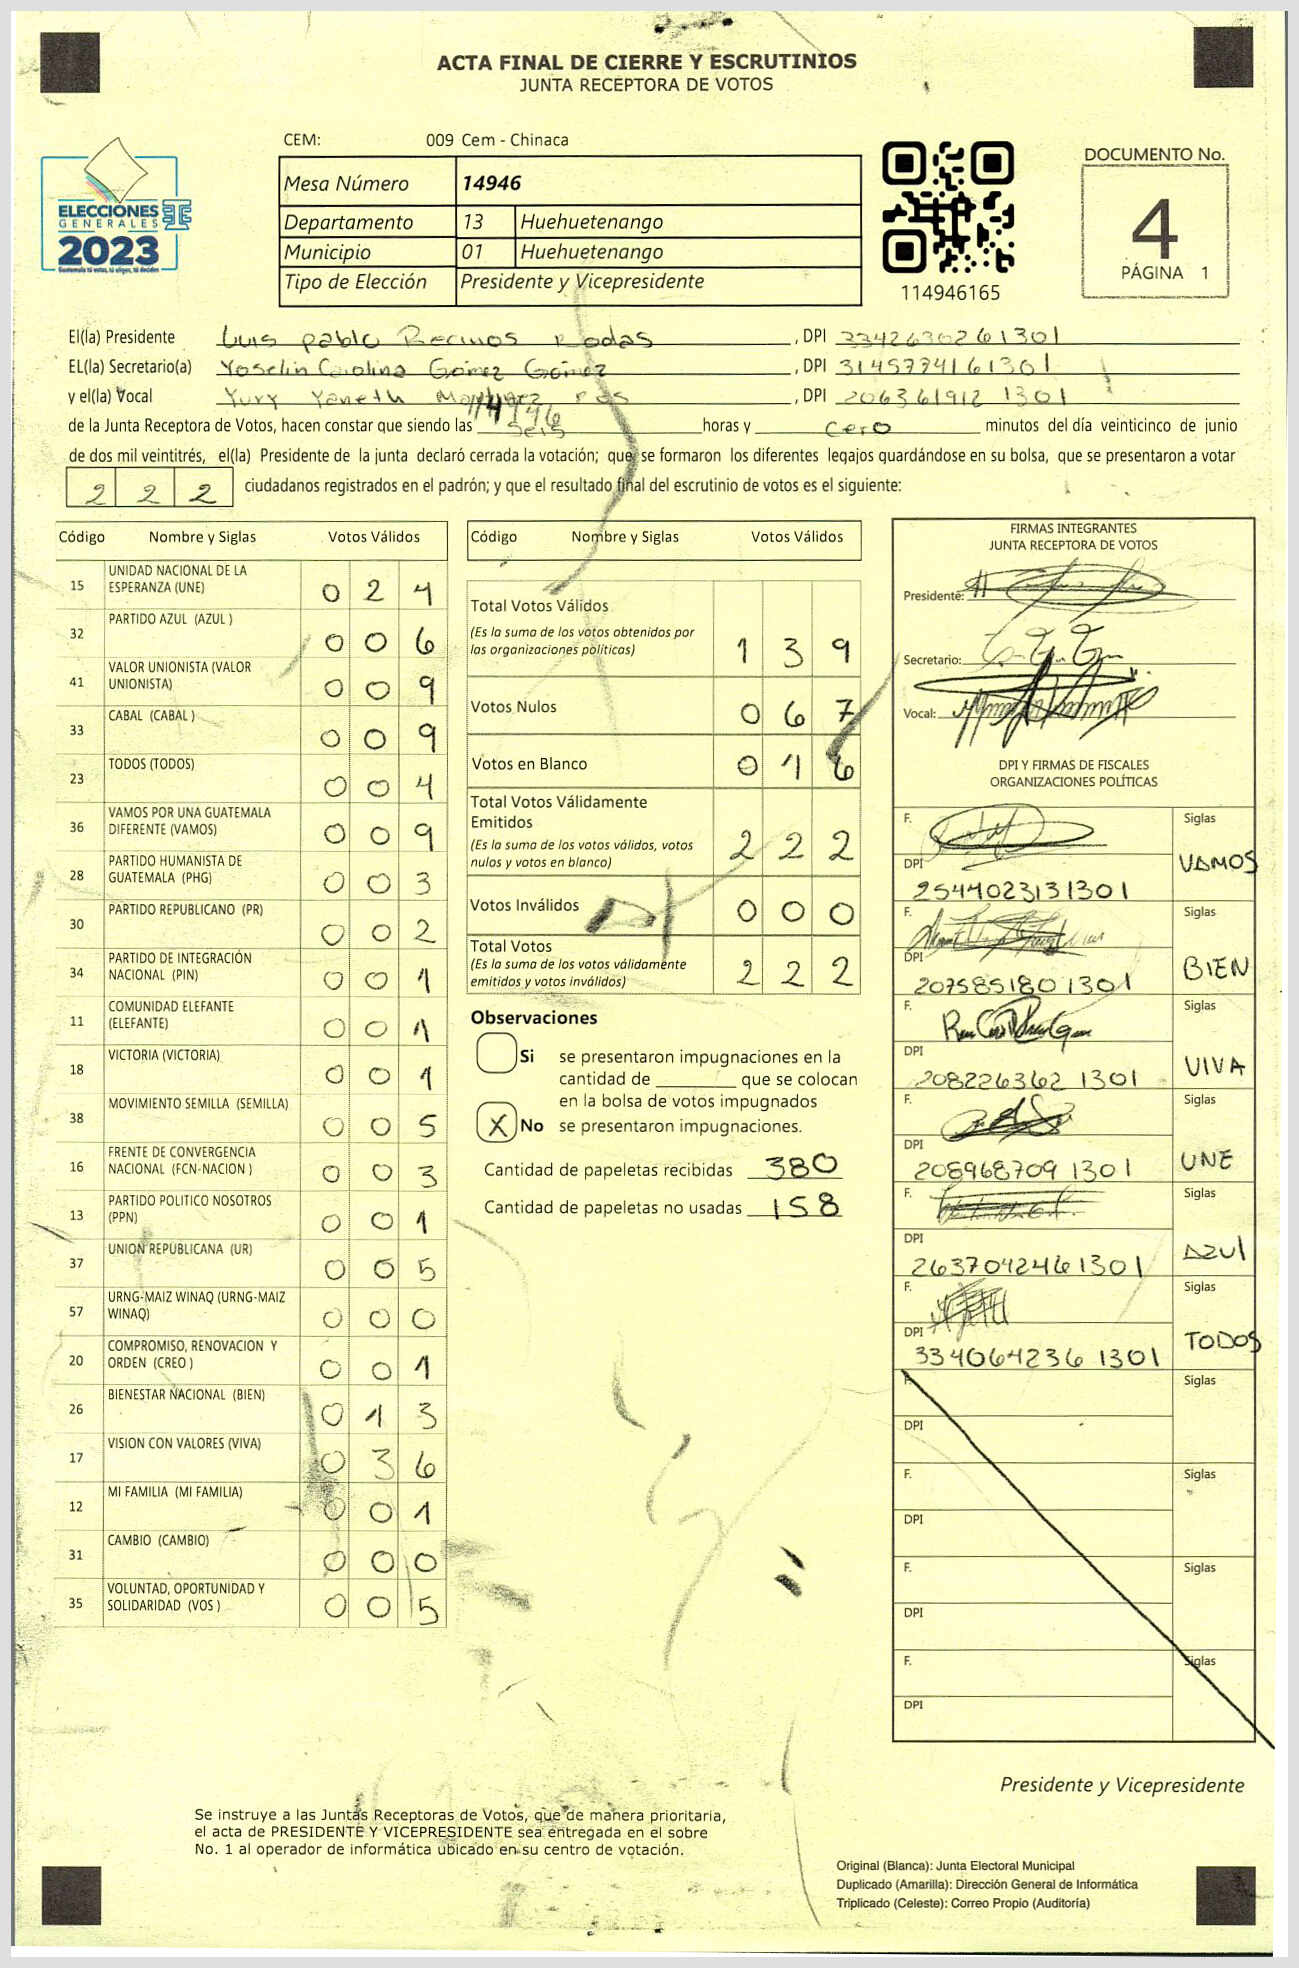 ACTA FINAL DE CIERRE Y ESCRUTINIOS
JUNTA RECEPTORA DE VOTOS
CEM: 009 Cem - Chinaca
ELECCIONES
GENERALES
2023
Guatemala tú votas, tú eliges, tú decides
Mesa Número 14946
Departamento 13 Huehuetenango
Municipio 01 Huehuetenango
Tipo de Elección Presidente y Vicepresidente
114946165
DOCUMENTO No.
4
PÁGINA 1
El(la) Presidente Luis pablo Recinos Rodas, DPI 3342630261301
EL(la) Secretario(a) Yoselin Carolina Gómez Gómez, DPI 3145774161301
y el(la) Vocal Yury Yaneth, DPI 206361912 1301
14946
de la Junta Receptora de Votos, hacen constar que siendo las seis horas y cero minutos del día veinticinco de junio
de dos mil veintitrés, el(la) Presidente de la junta declaró cerrada la votación; que se formaron los diferentes legajos guardándose en su bolsa, que se presentaron a votar
2 2 2 ciudadanos registrados en el padrón; y que el resultado final del escrutinio de votos es el siguiente:
Código Nombre y Siglas Votos Válidos
15 UNIDAD NACIONAL DE LA ESPERANZA (UNE) 0 2 4
32 PARTIDO AZUL (AZUL ) 0 0 6
41 VALOR UNIONISTA (VALOR UNIONISTA) 0 0 9
33 CABAL (CABAL ) 0 0 9
23 TODOS (TODOS) 0 0 4
36 VAMOS POR UNA GUATEMALA DIFERENTE (VAMOS) 0 0 9
28 PARTIDO HUMANISTA DE GUATEMALA (PHG) 0 0 3
30 PARTIDO REPUBLICANO (PR) 0 0 2
34 PARTIDO DE INTEGRACIÓN NACIONAL (PIN) 0 0 1
11 COMUNIDAD ELEFANTE (ELEFANTE) 0 0 1
18 VICTORIA (VICTORIA) 0 0 1
38 MOVIMIENTO SEMILLA (SEMILLA) 0 0 5
16 FRENTE DE CONVERGENCIA NACIONAL (FCN-NACION ) 0 0 3
13 PARTIDO POLITICO NOSOTROS (PPN) 0 0 1
37 UNION REPUBLICANA (UR) 0 0 5
57 URNG-MAIZ WINAQ (URNG-MAIZ WINAQ) 0 0 0
20 COMPROMISO, RENOVACION Y ORDEN (CREO ) 0 0 1
26 BIENESTAR NACIONAL (BIEN) 0 1 3
17 VISION CON VALORES (VIVA) 0 3 6
12 MI FAMILIA (MI FAMILIA) 0 0 1
31 CAMBIO (CAMBIO) 0 0 0
35 VOLUNTAD, OPORTUNIDAD Y SOLIDARIDAD (VOS ) 0 0 5
Código Nombre y Siglas Votos Válidos
Total Votos Válidos
(Es la suma de los votos obtenidos por
las organizaciones políticas) 1 3 9
Votos Nulos 0 6 7
Votos en Blanco 0 1 6
Total Votos Válidamente
Emitidos
(Es la suma de los votos válidos, votos
nulos y votos en blanco) 2 2 2
Votos Inválidos 0 0 0
Total Votos
(Es la suma de los votos válidamente
emitidos y votos inválidos) 2 2 2
Observaciones
Si se presentaron impugnaciones en la
cantidad de ________ que se colocan
en la bolsa de votos impugnados
X No se presentaron impugnaciones.
Cantidad de papeletas recibidas 380
Cantidad de papeletas no usadas 158
FIRMAS INTEGRANTES
JUNTA RECEPTORA DE VOTOS
Presidente:
Secretario:
Vocal:
DPI Y FIRMAS DE FISCALES
ORGANIZACIONES POLÍTICAS
F. Siglas
DPI VAMOS
2544023131301
F. Siglas
DPI BIEN
207585180 1301
F. Siglas
DPI VIVA
208226362 1301
F. Siglas
DPI UNE
208968709 1301
F. Siglas
DPI AZUl
2637042461301
F. Siglas
DPI TODOS
334064236 1301
F. Siglas
DPI
F. Siglas
DPI
F. Siglas
DPI
F. Siglas
DPI
Presidente y Vicepresidente
Se instruye a las Juntas Receptoras de Votos, que de manera prioritaria,
el acta de PRESIDENTE Y VICEPRESIDENTE sea entregada en el sobre
No. 1 al operador de informática ubicado en su centro de votación.
Original (Blanca): Junta Electoral Municipal
Duplicado (Amarilla): Dirección General de Informática
Triplicado (Celeste): Correo Propio (Auditoría)